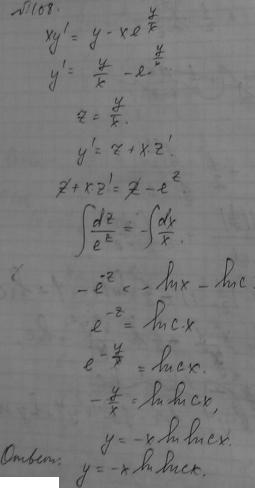 №108.
xy' = y - xe^{y/x}
y' = y/x - e^{y/x}
z = y/x.
y' = z + x·z'.
z + x·z' = z - e^z.
∫ dz/e^z = -∫ dx/x.
-e^{-z} = -ln x - ln c.
e^{-z} = ln c·x
e^{-y/x} = ln cx.
-y/x = ln ln cx,
y = -x ln ln cx.
Ответ: y = -x ln ln cx.